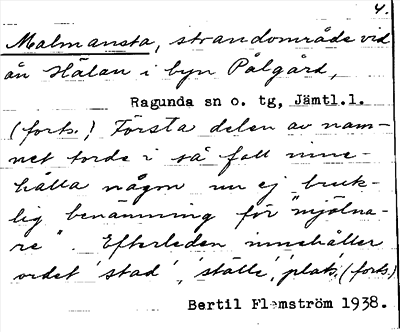 4.
Malmansta, strandområde vid
ån Hälan i byn Pålgård,
Ragunda sn o. tg, Jämtl.l.
(forts.) Första delen av nam-
net torde i så fall inne-
hålla någon nu ej bruk-
lig benämning för "mjölna-
re". Efterleden innehåller
ordet 'stad', 'ställe', 'plats', (forts.)
Bertil Flemström 1938.